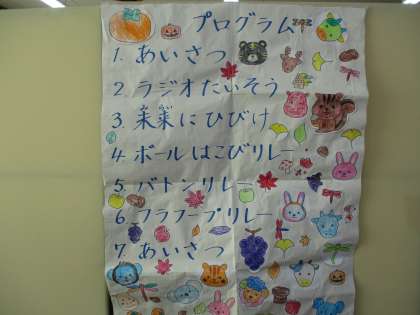 プログラム
1. あいさつ
2. ラジオたいそう
3. 未来にひびけ
4. ボールはこびリレー
5. バトンリレー
6 フラフープリレー
7. あいさつ